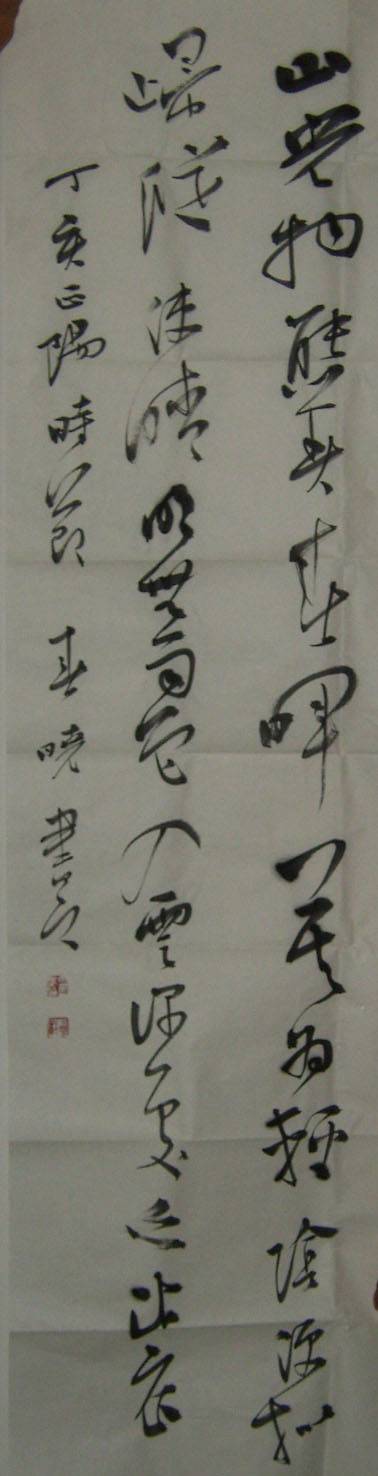 山光物態弄春暉莫為輕陰便擬
歸縱使晴明無雨色入雲深處亦沾衣
丁亥正陽時節 春曉書